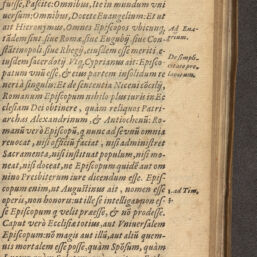 fuisse, Pascite: Omnibus, Ite in mundum vni
uersum: Omnibus, Docete Euangelium. Et ut
ait Hieronymus, Omnes Episcopos vbicunq,
tandem sint, siue Romæ, siue Eugubij, siue Con-
stātinopoli, siue Rhegij, eiusdem esse meriti, e-
iusdem sacerdotij. Vtq, Cyprianus ait: Episco-
patum vnū esse, & eius partem insolidum te
neri à singulis: Et de sententia Niceni cōcilij,
Romanum Episcopum nihilo plus iuris in Ec
clesiam Dei obtinere, quàm reliquos Patri-
archas Alexandrinum, & Antiochenū: Ro-
manū verò Episcopū, q nunc ad se vnū omnia
reuocat, nisi officiū faciat, nisi administret
Sacramenta, nisi instituat populum, nisi mo-
neat, nisi doceat, ne Episcopum quidē aut om
nino Presbiterum iure dicendum esse. Epis-
copum enim, ut Augustinus ait, nomen esse
operis, non honoris: ut ille se intelligat non es-
se Episcopum q velit præesse, & nō prodesse.
Caput verò Ecclesiæ totius, aut Vniuersalem
Episcopum: nō magis aut illū, aut aliū quem-
uis mortalem esse posse, quàm Spōsum, quàm
Ad Eua-
grium.
De simpli-
citate præ-
latorum.
1. ad Tim.
3.